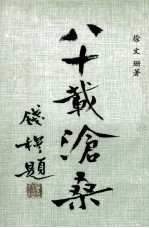 徐文珊著
八十載滄桑
錢穆題